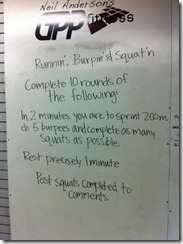 Neil Anderson's
GPP Fitness
Runnin', Burpin' & Squat'n
Complete 10 rounds of
the following:
In 2 minutes you are to sprint 200m,
do 5 burpees and complete as many
squats as possible.
Rest precisely 1 minute
Post squats completed to
comments.